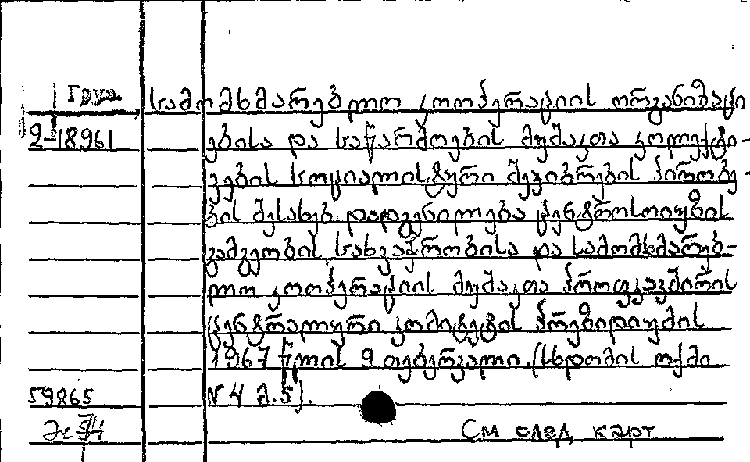 Груз. სამომხმარებლო კოოპერაციის ორგანიზაცი
2-18961 ების და საწარმოების მუშაკთა კოლექტი-
ვების სოციალისტური შეჯიბრების პირობე-
ბის შესახებ. დადგენილება ცენტროსოიუზის
გამგეობის სახელმწიფო და სამომხმარებ-
ლო კოოპერაციის მუშაკთა პროფკავშირის
ცენტრალური კომიტეტის პრეზიდიუმის
1967 წლის 9 თებერვალი. (სხდომის ოქმი
59865 N 4 მ. 5).
См след. карт